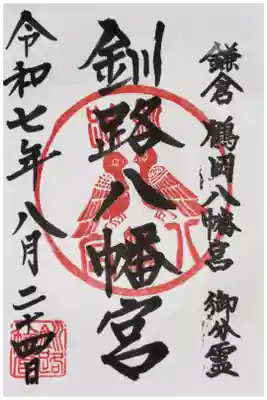 鎌倉 鶴岡八幡宮 御分霊
釧路八幡宮
令和七年 八月 二十四日